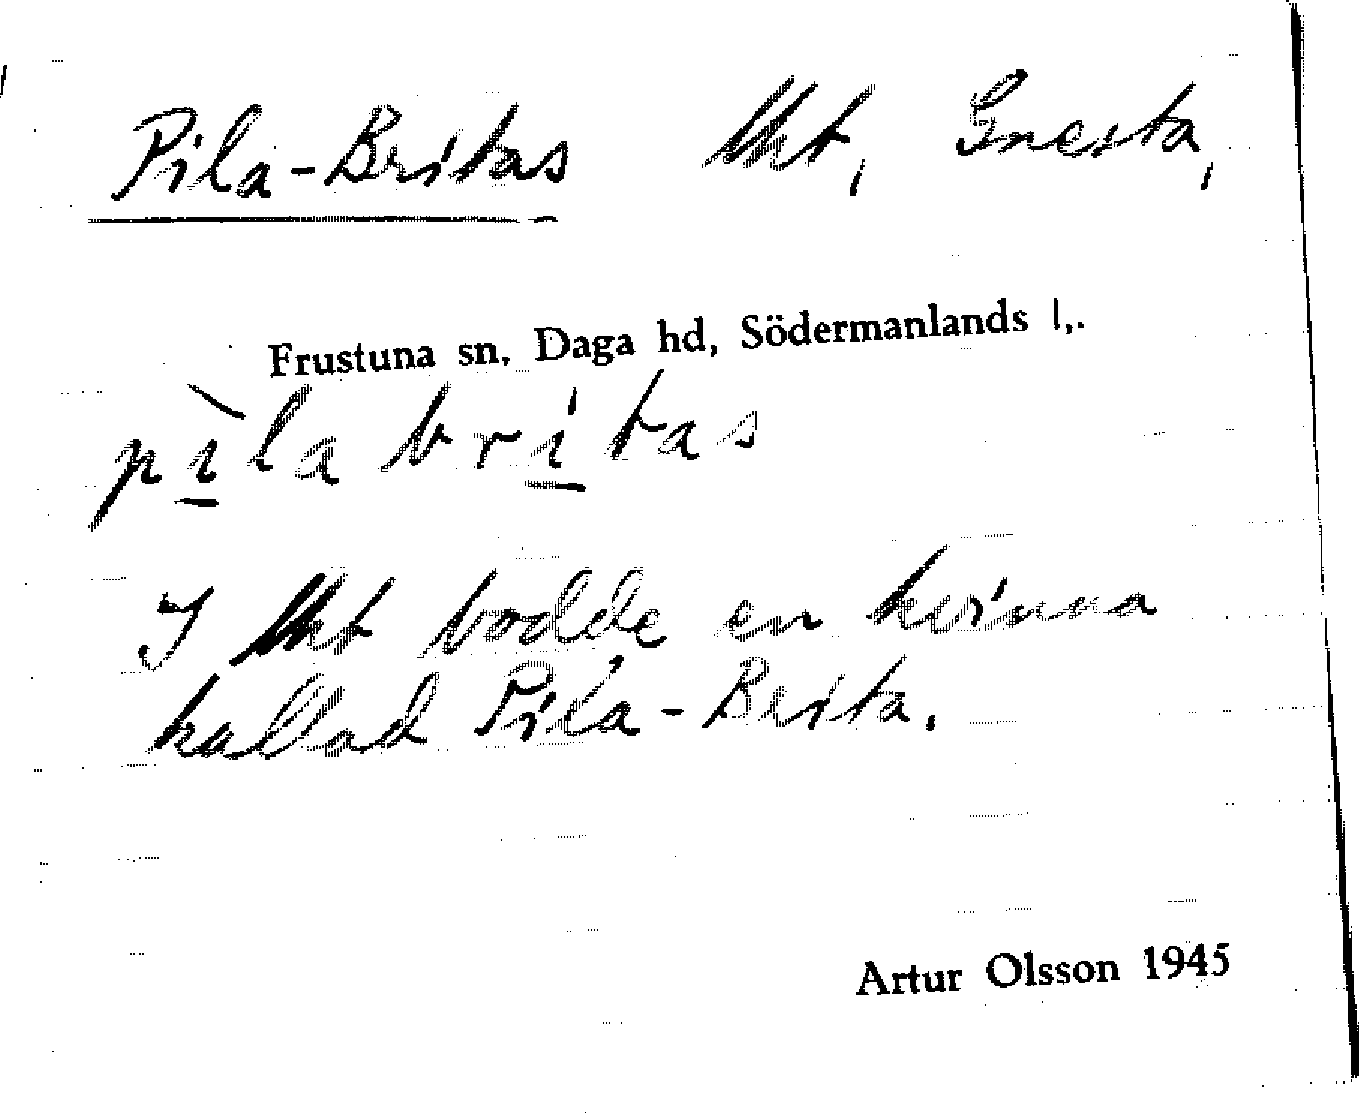 Pila-Britas lht, Gnesta,
Frustuna sn, Daga hd, Södermanlands l,.
pìla brítas
I lht bodde en kvinna
kallad Pila-Brita.
Artur Olsson 1945